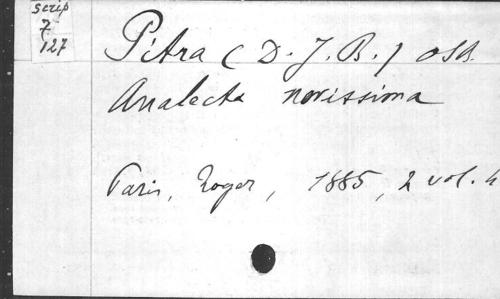 scrip
7
127
Pitra (D. J. B.) OSB.
Analecta novissima
Paris, Roger, 1885, 2 vol.